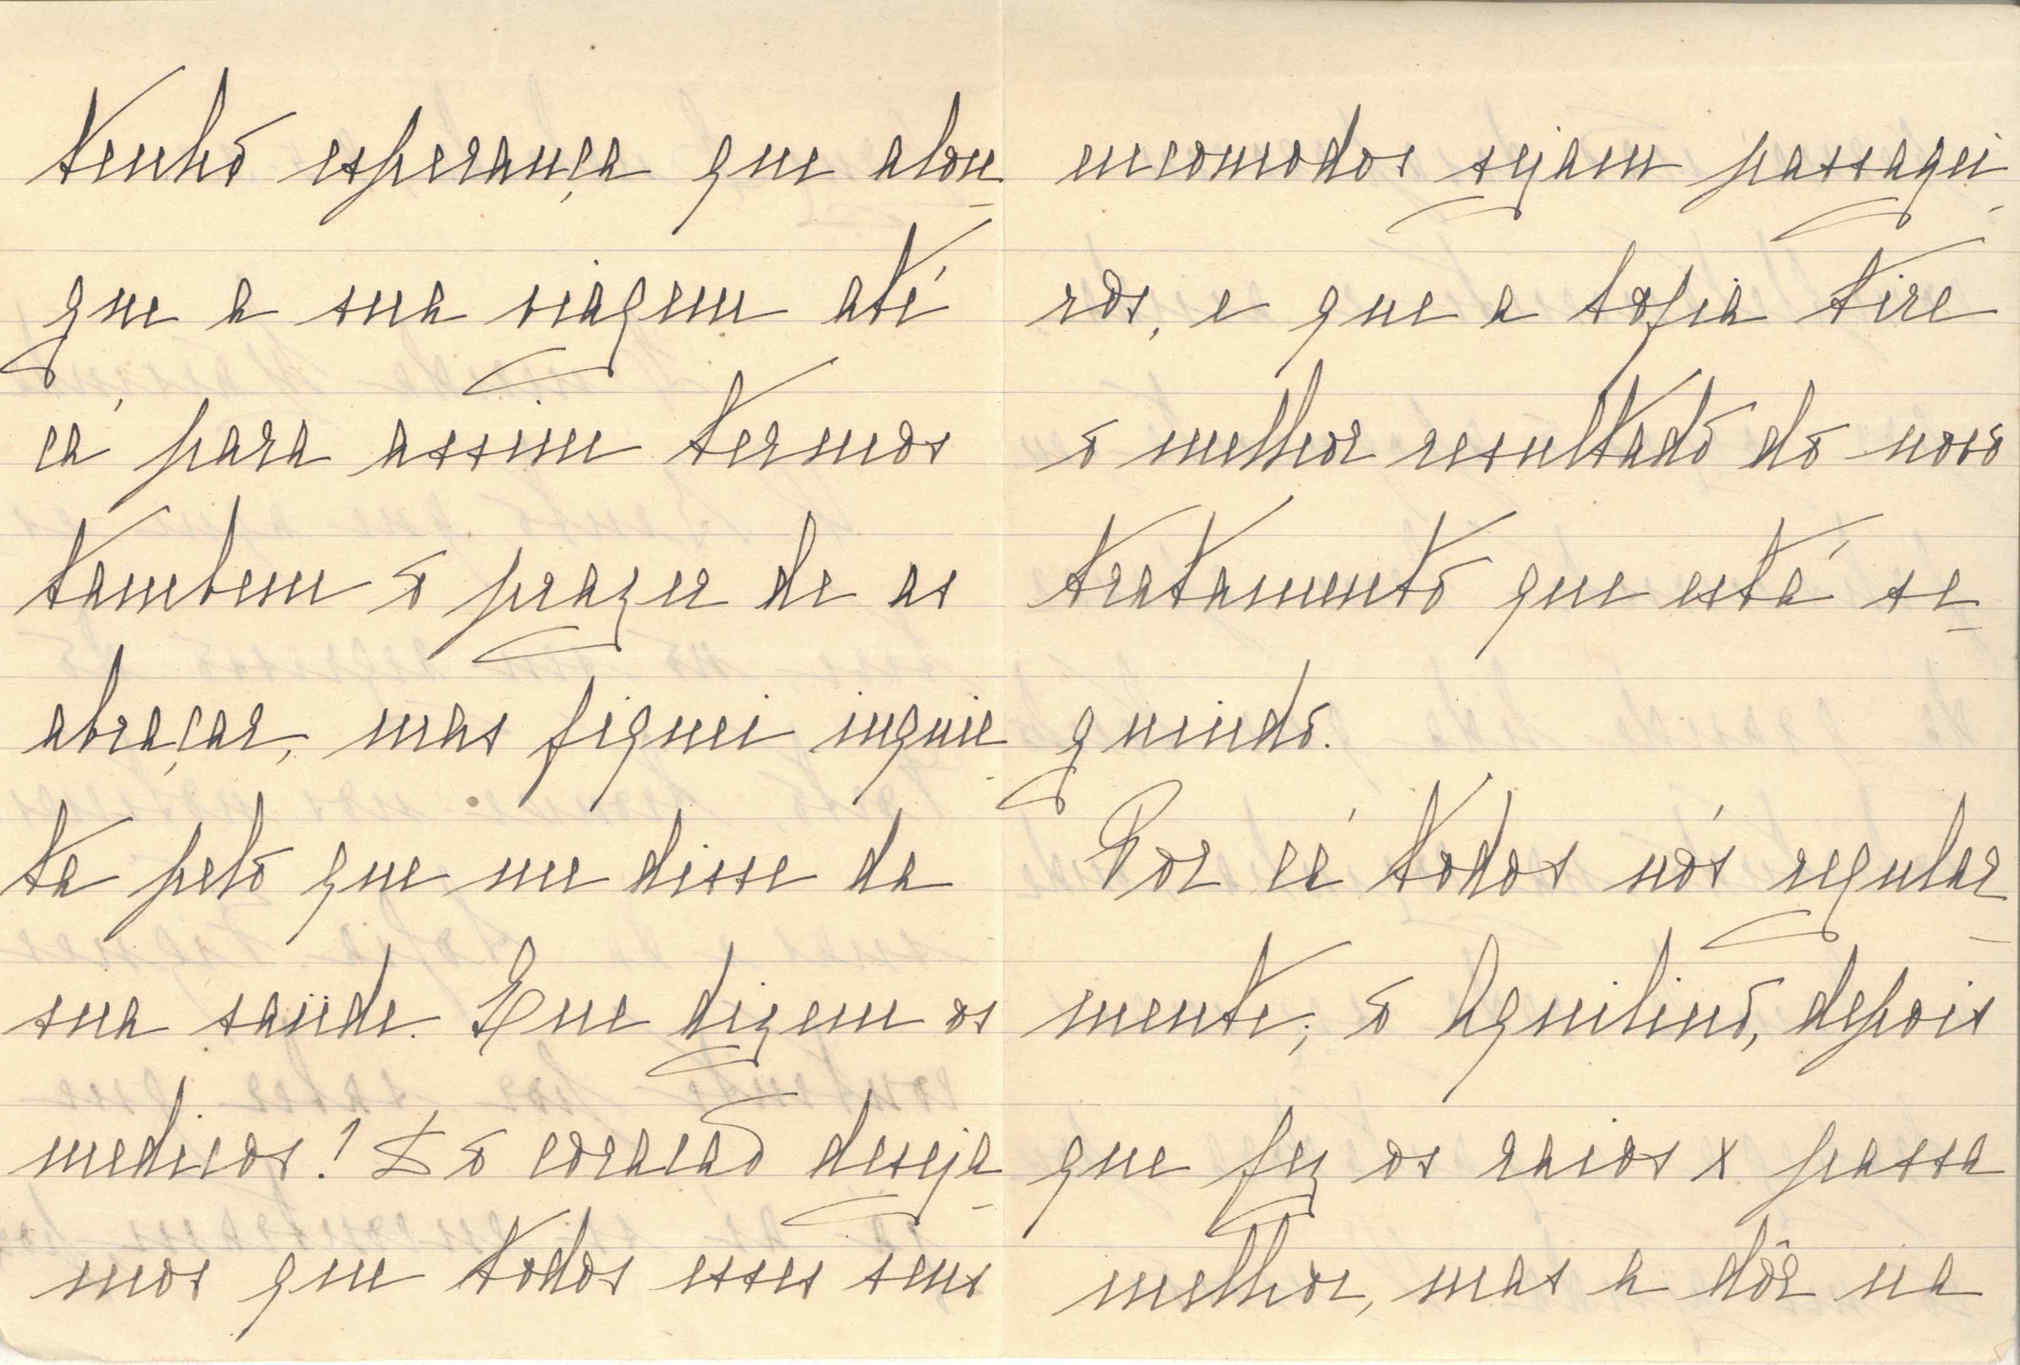 tenho esperança que alon-
gue a sua viagem até
cá para assim termos
tambem o prazer de as
abraçar, mas fiquei inquie-
ta pelo que me disse da
sua saúde. Que dizem os
medicos! Do coração deseja-
mos que todos esses seus
encomodos sejam passagei-
ros, e que a Sofia tire
o melhor resultado do novo
tratamento que está se-
guindo.
Por cá todos nós regular-
mente; o Aquilino, depois
que fez os raios x passa
melhor, mas a dôr na